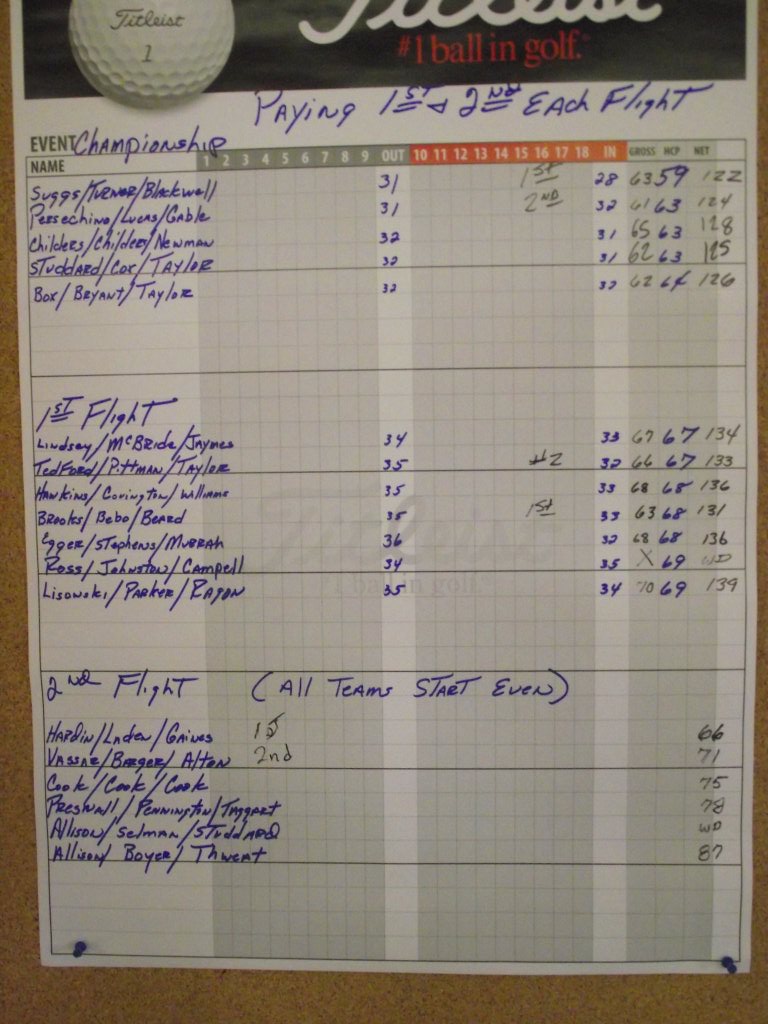 Titleist
Titleist
1
#1 ball in golf.
PAYING 1ST & 2ND EACH FLIGHT
EVENT Championship
NAME 1 2 3 4 5 6 7 8 9 OUT 10 11 12 13 14 15 16 17 18 IN GROSS HCP NET
Suggs/Turner/Blackwell 31 1st 28 63 59 122
Persechino/Lucas/Gable 31 2ND 32 61 63 124
Childers/Childers/Newman 32 31 65 63 128
Studdard/Cox/Taylor 32 31 62 63 125
Box/Bryant/Taylor 32 32 62 64 126
1ST Flight
Lindsey/McBride/Jaynes 34 33 67 67 134
Tedford/Pittman/Taylor 35 #2 32 66 67 133
Hawkins/Covington/Williams 35 33 68 68 136
Brooks/Bebo/Beard 35 1st 33 63 68 131
Egger/Stephens/Murrah 36 32 68 68 136
Ross/Johnston/Campell 34 35 X 69 WD
Lisowski/Parker/Ragon 35 34 70 69 139
Titleist
#1 ball in golf
2ND Flight (ALL TEAMS START EVEN)
Hardin/Laden/Gaines 1st 66
Vassar/Barger/Alton 2nd 71
Cook/Cook/Cook 75
Preswall/Pennington/Taggart 78
Allison/Selman/Studdard WD
Allison/Boyer/Thweat 87